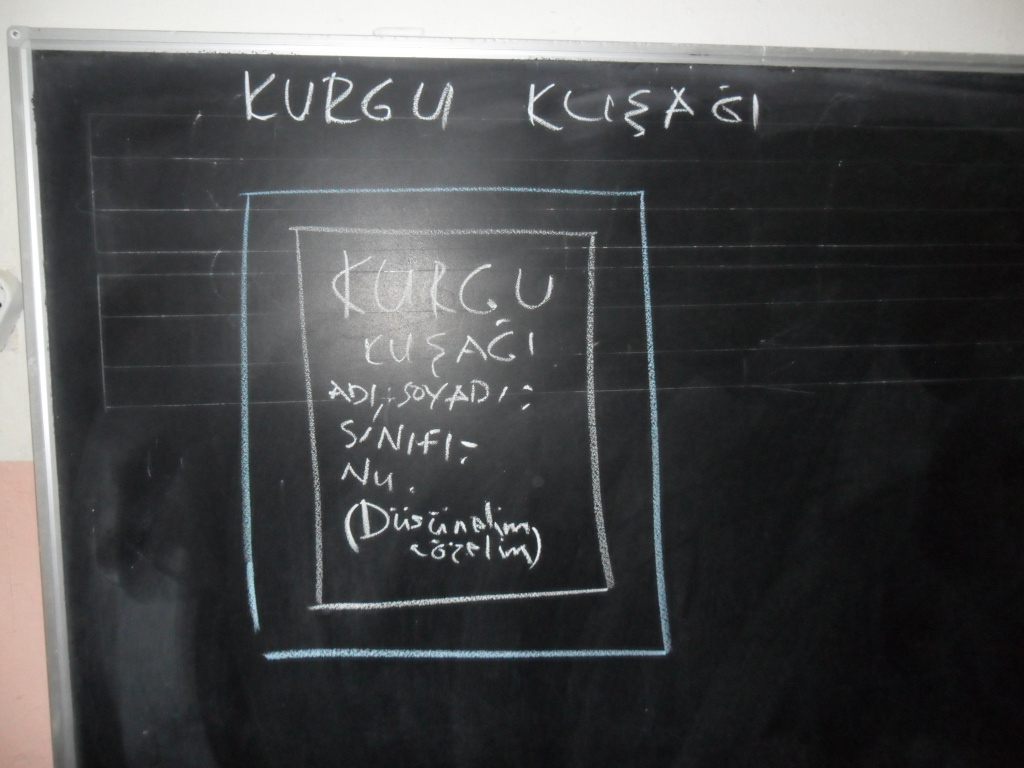 KURGU KUŞAĞI
KURGU
KUŞAĞI
ADI, SOYADI:
SINIFI:
NU.
(Düşünelim
çözelim)